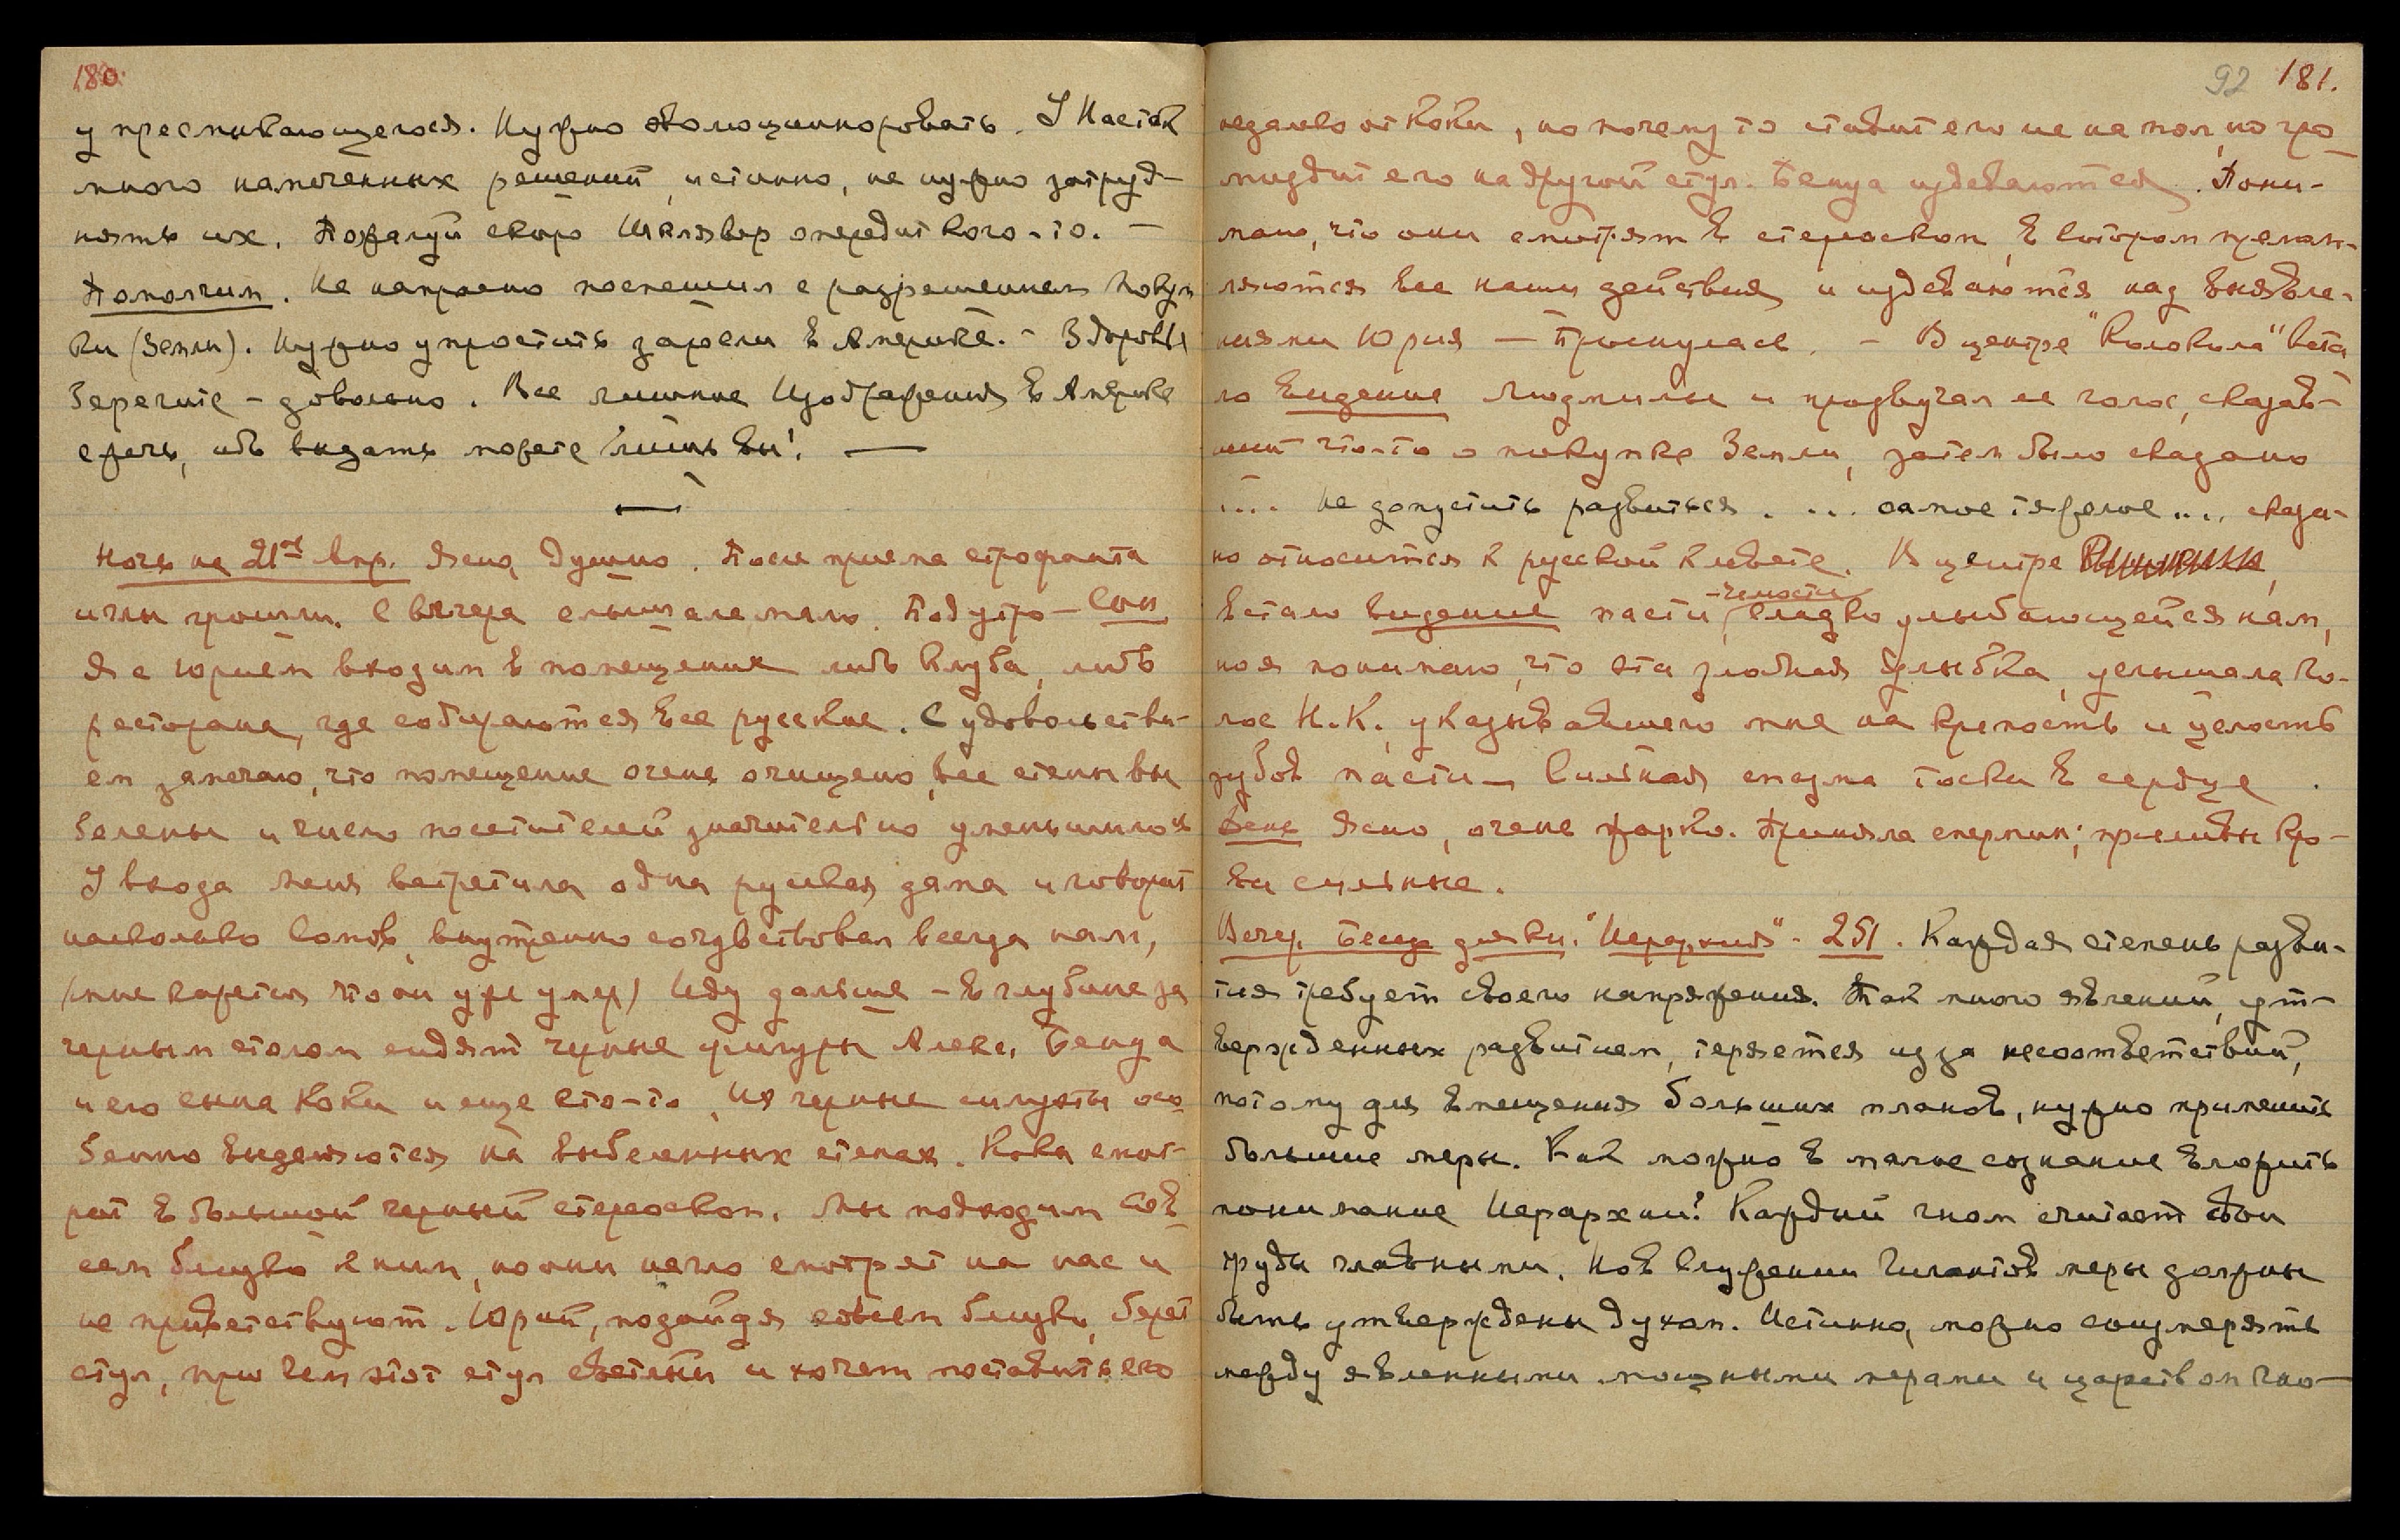 180.
у пресмыкающегося. Нужно эволюционировать. У Нас так
много намеченных решений, истинно, не нужно затруд-
нять их. Пожалуй скоро опередит кого-то. —
Помолчим. Не напрасно поспешил с разрешением покуп
ки (Земли). Нужно упростить в Америке. – Здоровье
Берегите – довольно. Все лишние Изображения в Америке
сжечь, ибо видать можете лишь вы! —
—
Ночь на 21ое Апр. Ясно, душно. После приема строфанта
иглы прошли. С вечера слышала мало. Под утро – Сон
Я с Юрием входим в помещение либо Клуба, либо
ресторана, где собираются все русские. С удовольстви-
ем замечаю, что помещение очень очищено, все стены вы
белены и число посетителей значительно уменьшилось
У входа меня встретила одна русская дама и говорит
насколько Сомов внутренно сочувствовал всегда нам,
(мне кажется что он уже умер) Иду дальше – в глубине за
черным столом сидят черные фигуры Алекс. Бенуа
и его сына Коки и еще кто-то, их черные силуэты осо
бенно выделяются на выбеленных стенах. Кока смот-
рит в большой черный стереоскоп. Мы подходим сов
сем близко к ним, но они нагло смотрят на нас и
не приветствуют. Юрий, подойдя совсем близко, берет
стул, при чем этот стул светлый и хочет поставить его
92 181.
недалеко от Коки, но почему то ставит его не на пол, но гро
моздит его на другой стул. Бенуа издеваются. Пони-
маю, что они смотрят в стереоскоп, в котором прелом-
ляются все наши действия и издеваются над выявле-
ниями Юрия — Проснулась. – В центре "Колокола" вста
ло видение Людмилы и прозвучал ее голос, сказав-
ший что-то о покупке Земли, затем было сказано
.... Не допустить развиться. ... самое тяжелое ... сказа-
но относится к русской клевете. В центре
встало видение пасти, -челюсти сладко улыбающейся нам,
но я понимаю, что эта злобная улыбка, услышала го-
лос Н.К., указывавшего мне на крепость и целость
зубов пасти – Сильная спазма тоски в сердце.
День Ясно, очень жарко. Приняла спермин; приливы кро-
ви сильные.
Вечер. Беседа для кн. "Иерархия" - 251. Каждая степень разви-
тия требует своего напряжения. Так много явлений, ут-
вержденных развитием, теряется из за несоответствий,
потому для вмещения больших планов, нужно применить
большие меры. Как можно в малое сознание вложить
понимание Иерархии! Каждый гном считает свои
труды главными. Но в служении Гигантов меры должны
быть утверждены духом. Истинно, можно соизмерять
между явленными мощными мерами и царством гно-